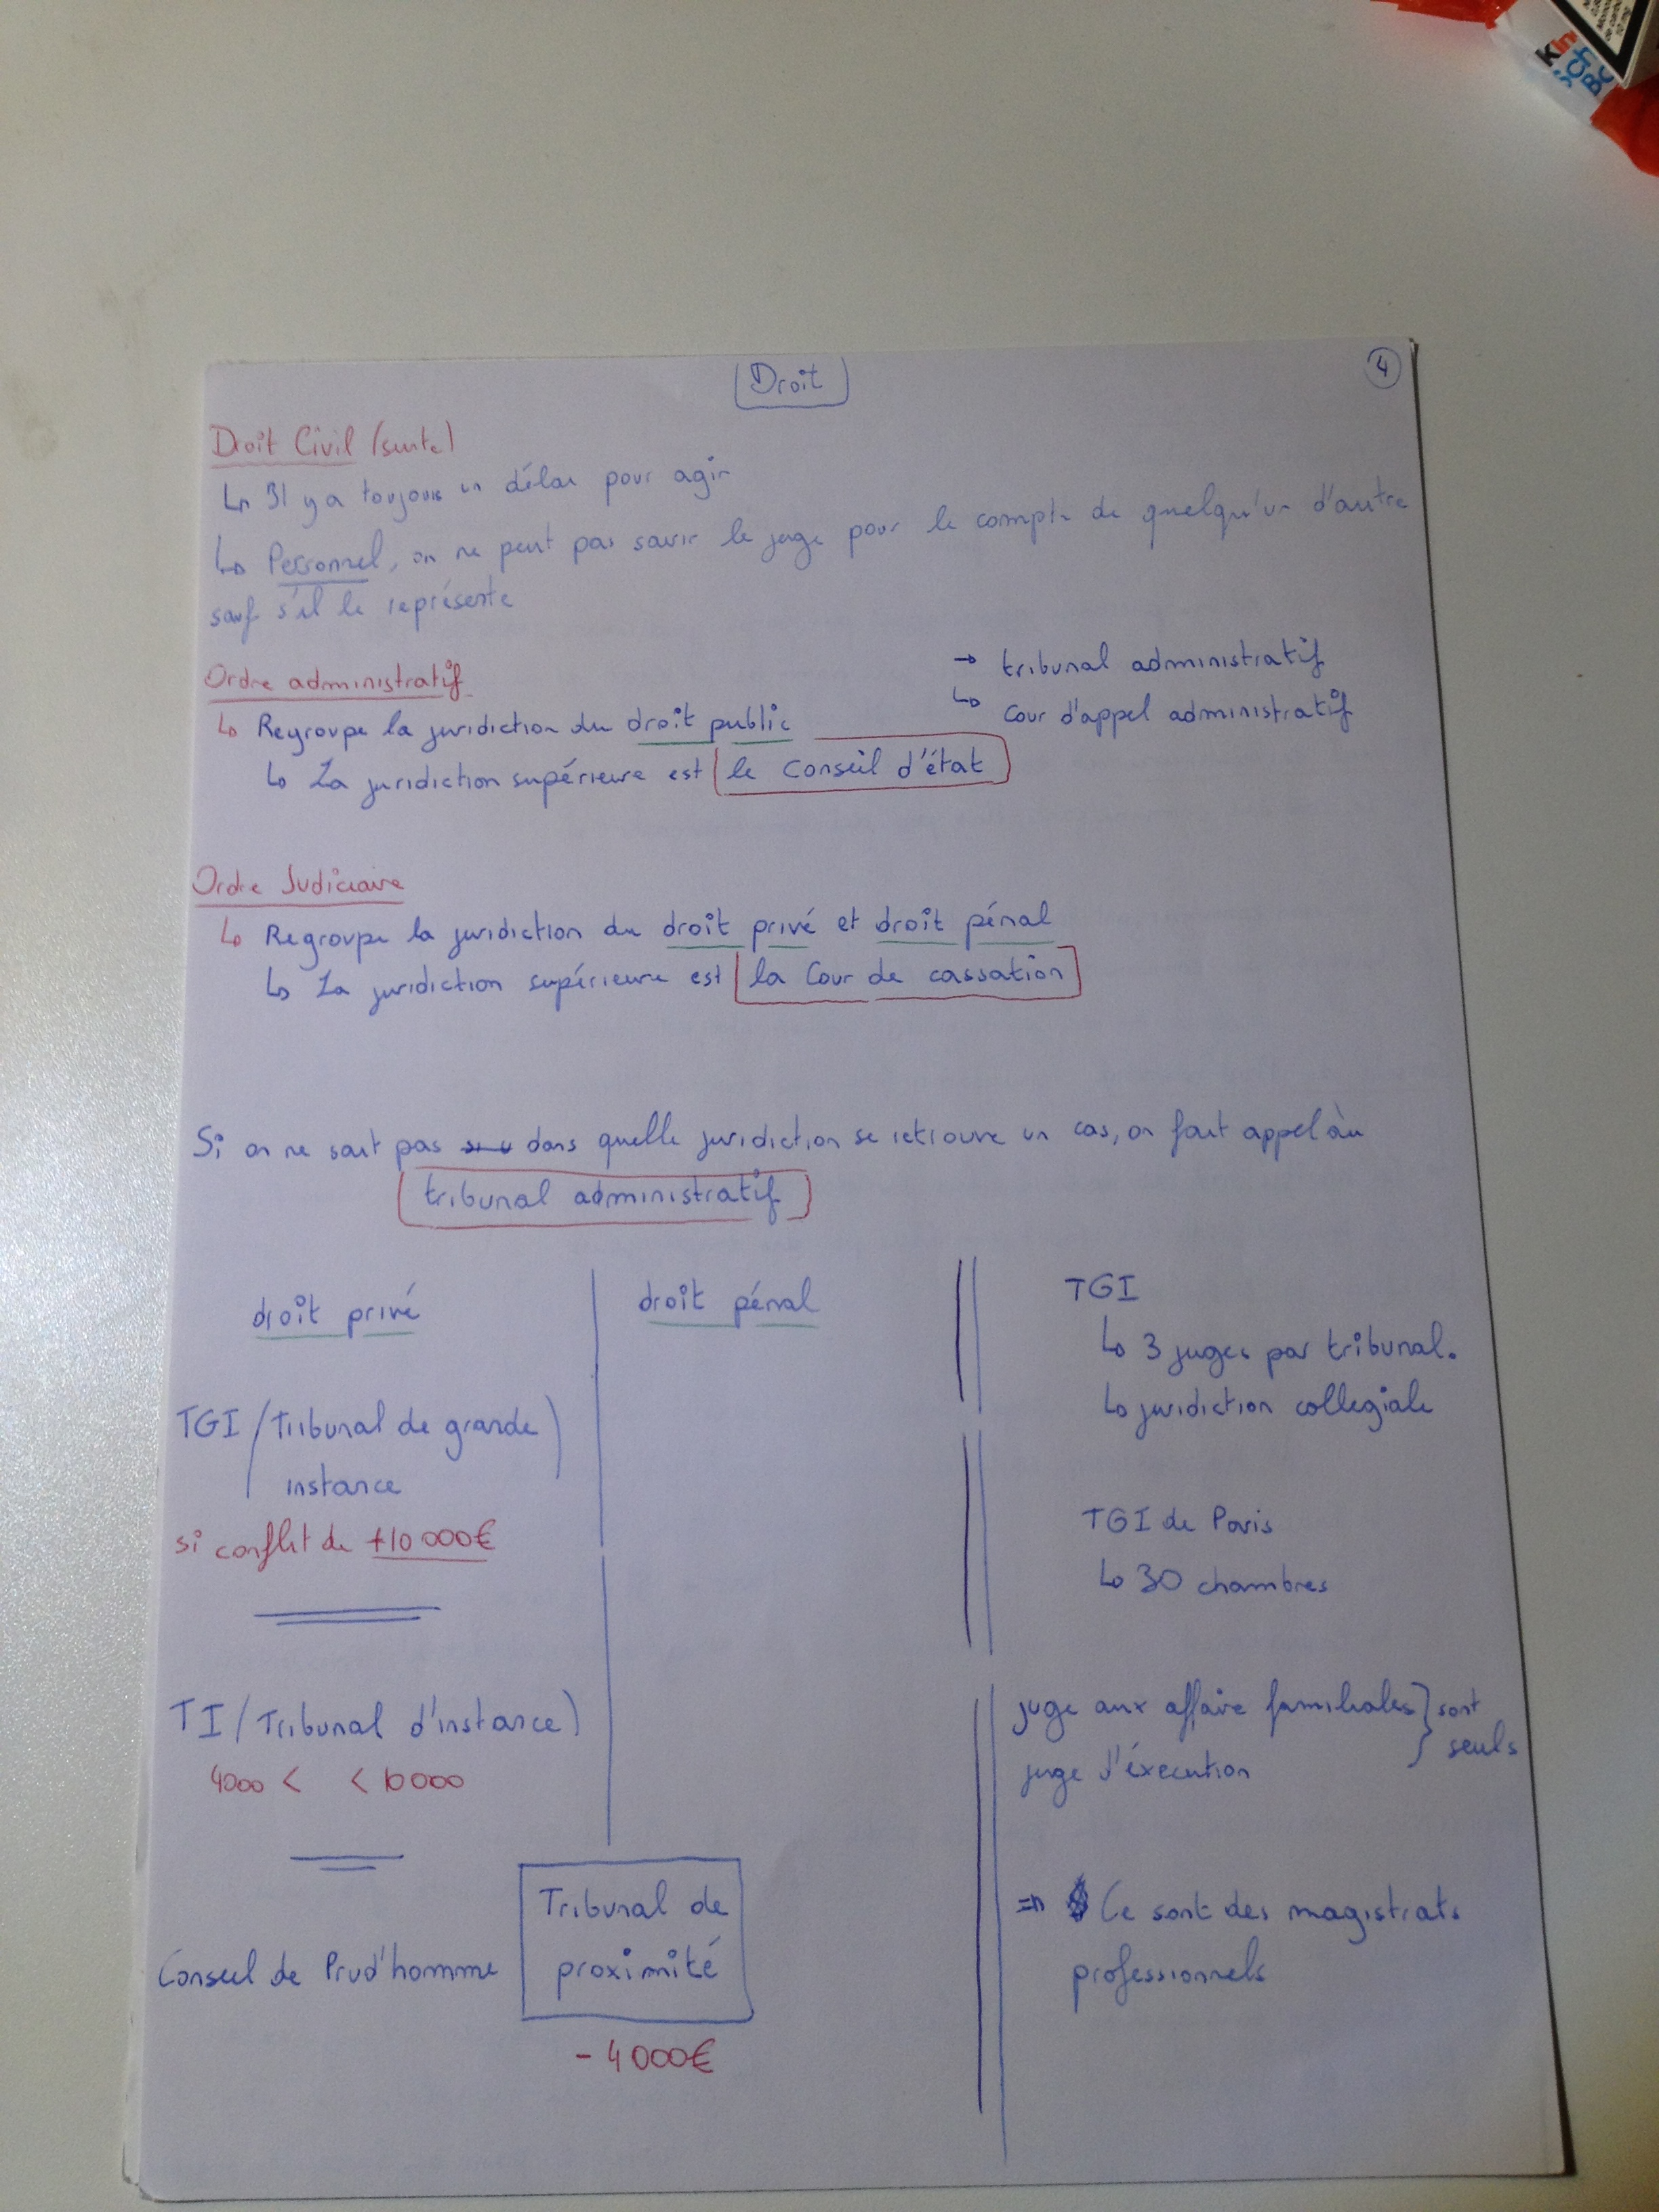 Droit
4
Droit Civil (suite)
↳ Il y a toujours un délai pour agir
↳ Personnel, on ne peut pas saisir le juge pour le compte de quelqu'un d'autre
sauf s'il le représente
Ordre administratif
→ tribunal administratif
↳ Cour d'appel administratif
↳ Regroupe la juridiction du droit public
↳ La juridiction supérieure est le Conseil d'état
Ordre Judiciaire
↳ Regroupe la juridiction du droit privé et droit pénal
↳ La juridiction supérieure est la Cour de cassation
Si on ne sait pas dans quelle juridiction se retrouve un cas, on fait appel au
tribunal administratif
droit privé
droit pénal
TGI (Tribunal de grande
instance)
si conflit de +10 000€
TI (Tribunal d'instance)
4000 < < 10 000
Conseil de Prud'homme
Tribunal de
proximité
- 4 000€
TGI
↳ 3 juges par tribunal.
↳ juridiction collegiale
TGI de Paris
↳ 30 chambres
juge aux affaire familiales } sont
juge d'éxecution } seuls
⇒ Ce sont des magistrats
professionnels